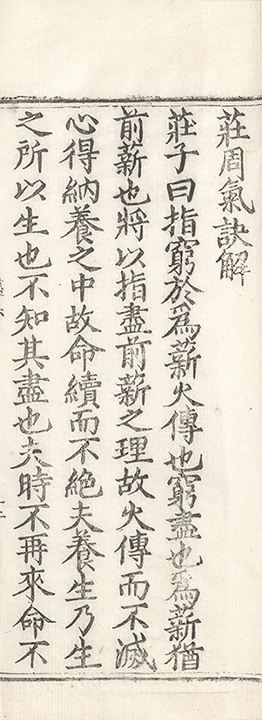 莊周氣訣解
莊子曰指窮於爲薪火傳也窮盡也爲薪猶
前薪也將以指盡前薪之理故火傳而不滅
心得納養之中故命續而不絶夫養生乃生
之所以生也不知其盡也夫時不再來命不